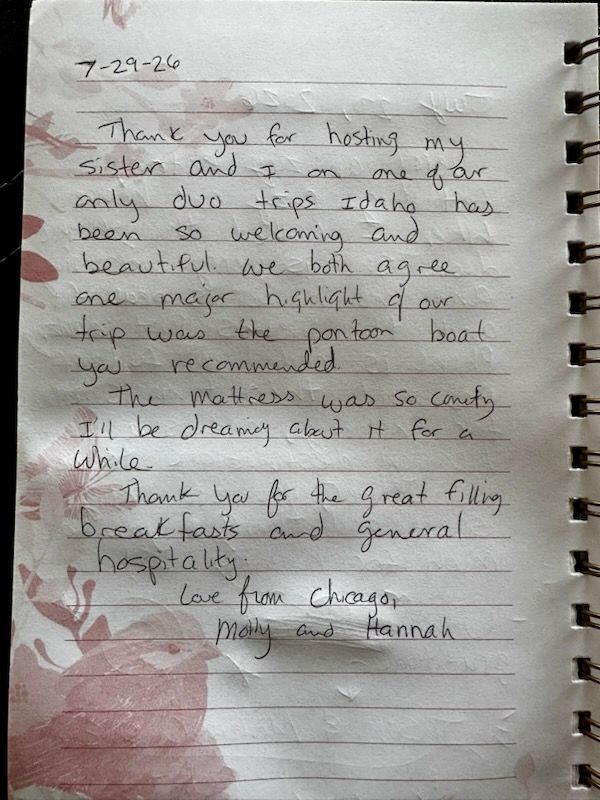 7-29-26
Thank you for hosting my
sister and I on one of our
only duo trips Idaho has
been so welcoming and
beautiful. We both agree
one major highlight of our
trip was the pontoon boat
you recommended.
The mattress was so comfy
I'll be dreaming about it for a
while.
Thank you for the great filling
breakfasts and general
hospitality.
Love from Chicago,
Molly and Hannah